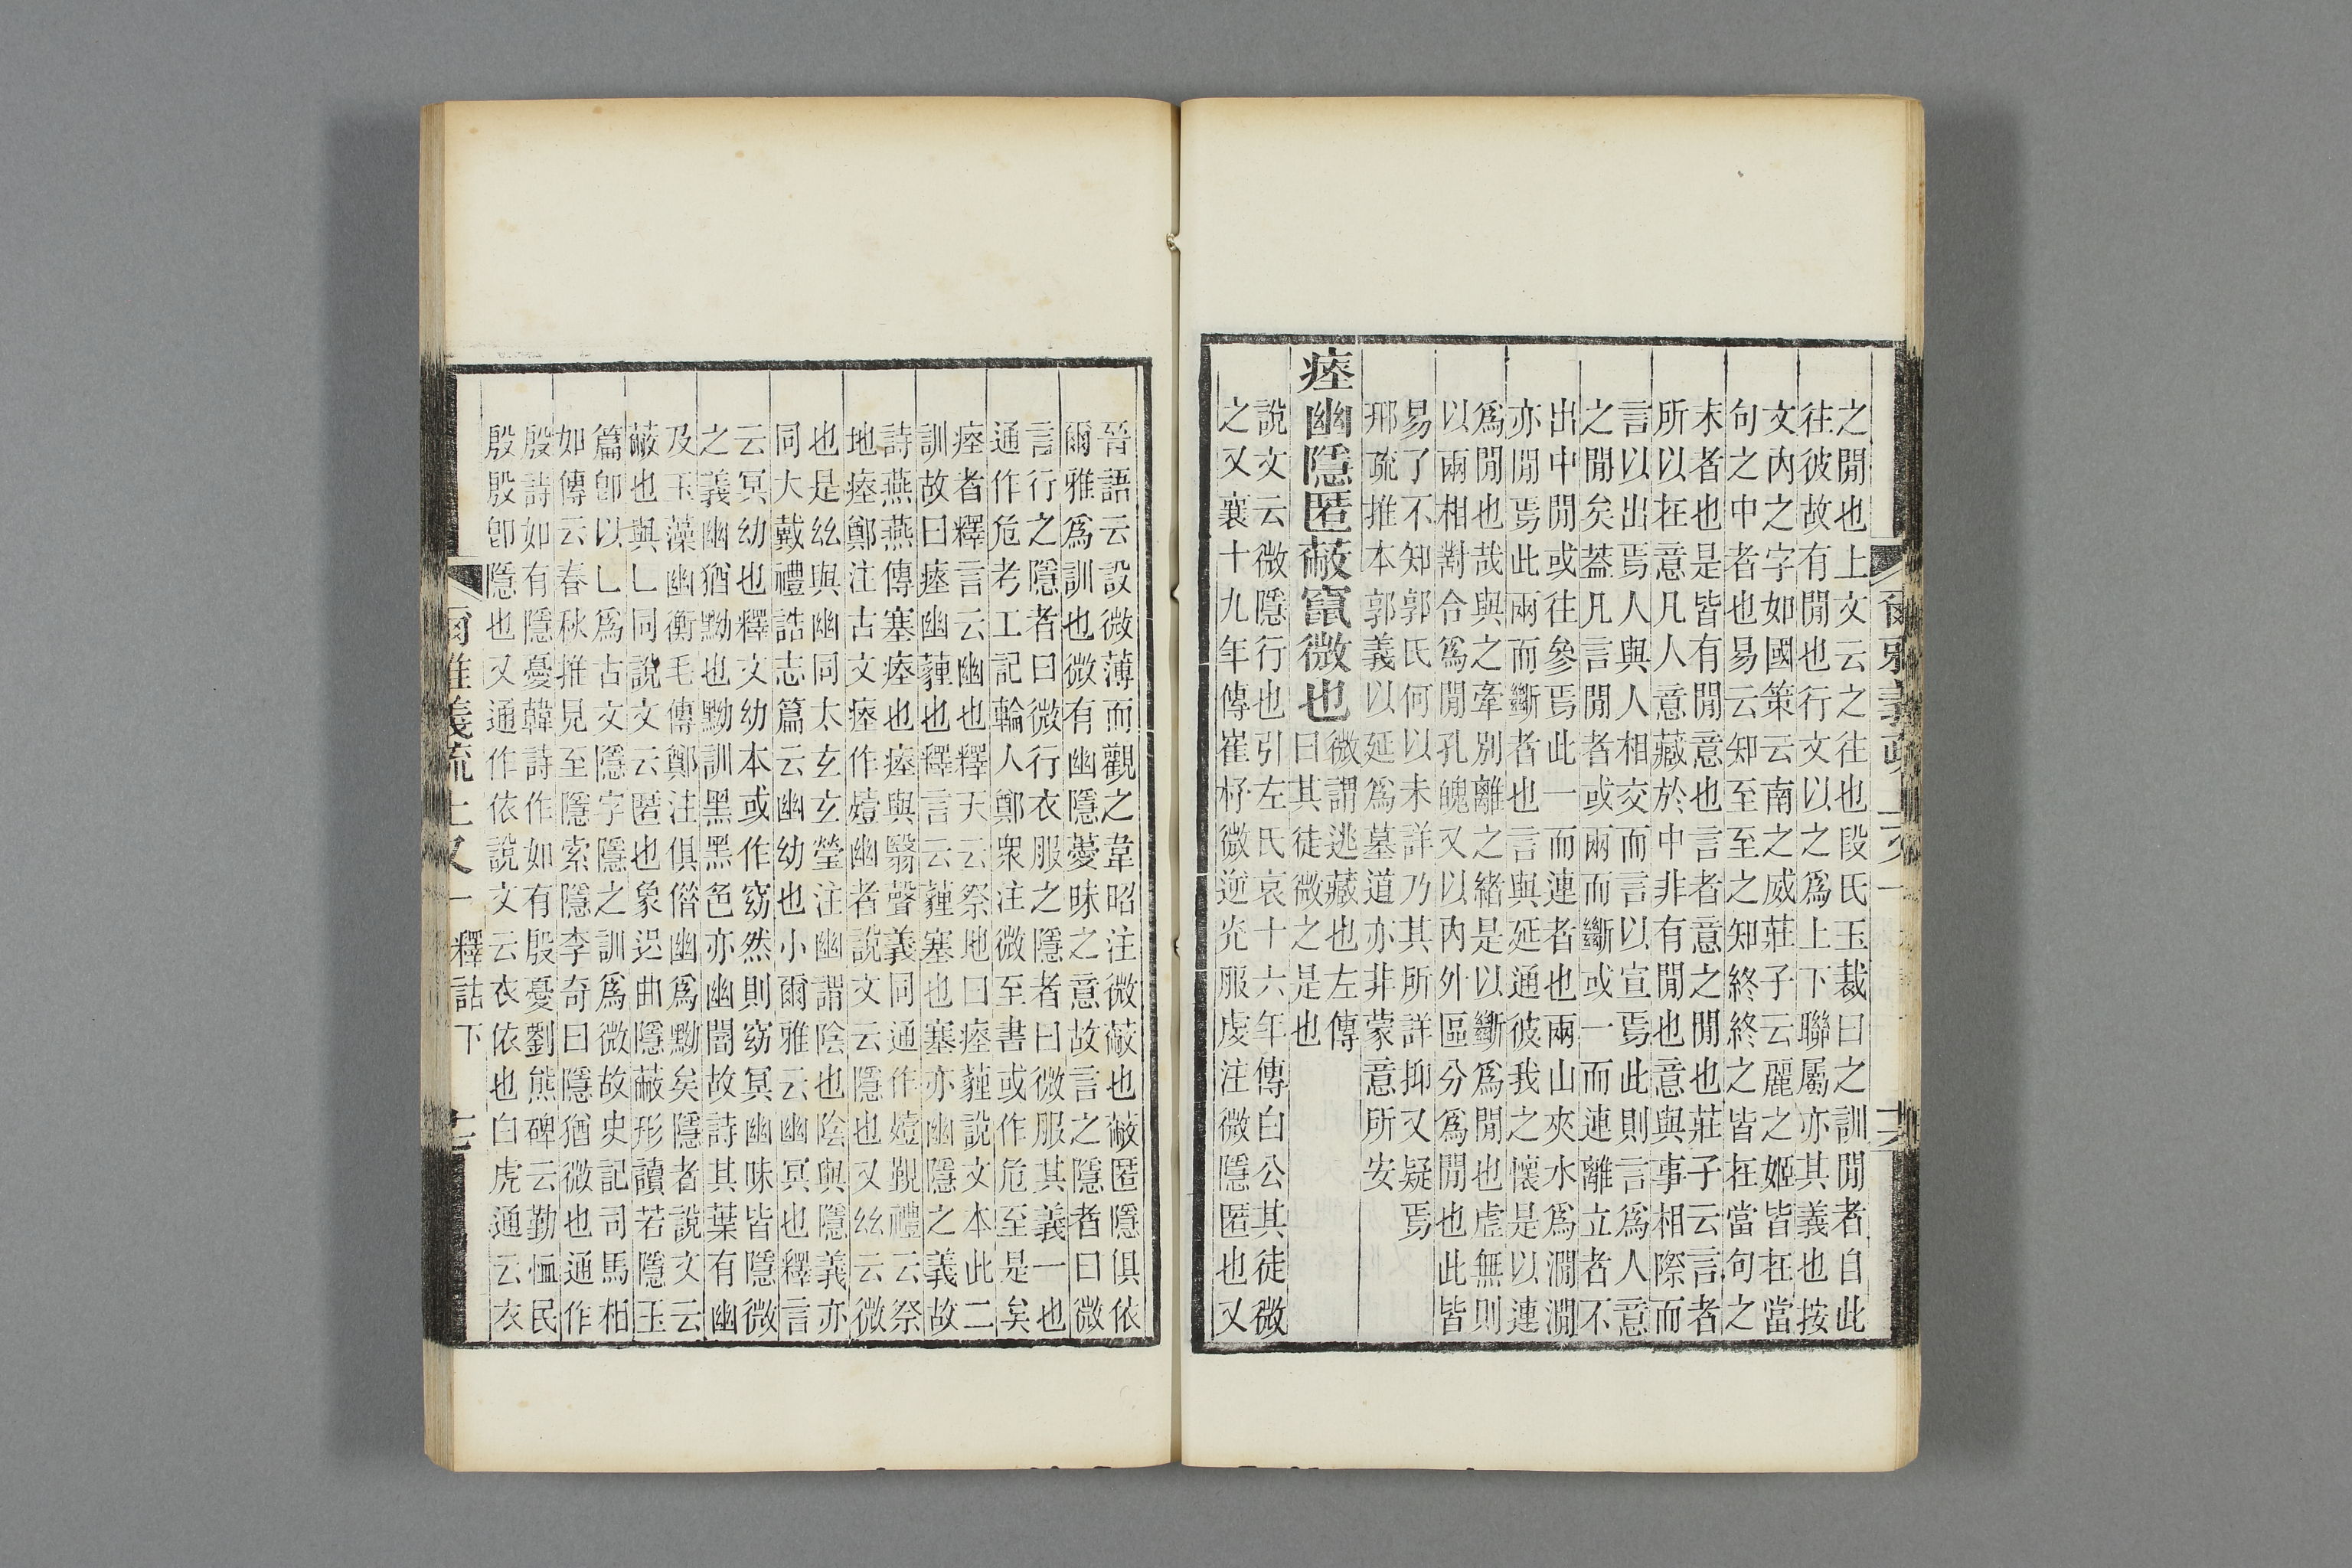 之閒也上文云之往也段氏玉裁曰之訓閒者自此
往彼故有閒也行文以之爲上下聯屬亦其義也按
文內之字如國策云南之威莊子云麗之姬皆在當
句之中者也易云知至至之知終終之皆在當句之
末者也是皆有閒意也言者意之閒也莊子云言者
所以在意凡人意藏於中非有閒也意與事相際而
言以出焉人與人相交而言以宣焉此則言爲人意
之閒矣葢凡言閒者或兩而斷或一而連離立者不
出中閒或往參焉此一而連者也兩山夾水爲澗澗
亦閒焉此兩而斷者也言與延通彼我之懷是以連
爲閒也哉與之牽別離之緒是以斷爲閒也虛無則
以兩相對合爲閒孔魄又以內外區分爲閒也此皆
易了不知郭氏何以未詳乃其所詳抑又疑焉
邢疏推本郭義以延爲墓道亦非蒙意所安
瘞幽隱匿蔽竄微也
微謂逃藏也左傳
曰其徒微之是也
說文云微隱行也引左氏哀十六年傳白公其徒微
之又襄十九年傳崔杼微逆光服虔注微隱匿也又
爾雅義疏
釋詁下
晉語云設微薄而觀之韋昭注微蔽也蔽匿隱俱依
爾雅爲訓也微有幽隱薆昧之意故言之隱者曰微
言行之隱者曰微行衣服之隱者曰微服其義一也
通作危考工記輪人鄭衆注微至書或作危至是矣
瘞者釋言云幽也釋天云祭地曰瘞薶說文本此二
訓故曰瘞幽薶也釋言云薶塞也塞亦幽隱之義故
詩燕燕傳塞瘞也瘞與翳聲義同通作㙪觐禮云祭
地瘞鄭注古文瘞作㙪幽者說文云隱也又𢆶云微
也是𢆶與幽同太玄玄瑩注幽謂陰也陰與隱義亦
同大戴禮誥志篇云幽幼也小爾雅云幽冥也釋言
云冥幼也釋文幼本或作窈然則窈冥幽昧皆隱微
之義幽猶黝也黝訓黑黑色亦幽闇故詩其葉有幽
及玉藻幽衡毛傳鄭注俱偕幽爲黝矣隱者說文云
蔽也與𠃊同說文云匿也象迟曲隱蔽形讀若隱玉
篇卽以𠃊爲古文隱字隱之訓爲微故史記司馬相
如傳云春秋推見至隱索隱李奇曰隱猶微也通作
殷詩如有隱憂韓詩作如有殷憂劉熊碑云勤恤民
殷殷卽隱也又通作依說文云衣依也白虎通云衣